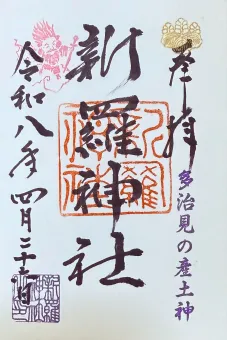 奉拝
多治見の産土神
新羅神社
令和八年四月二十六日